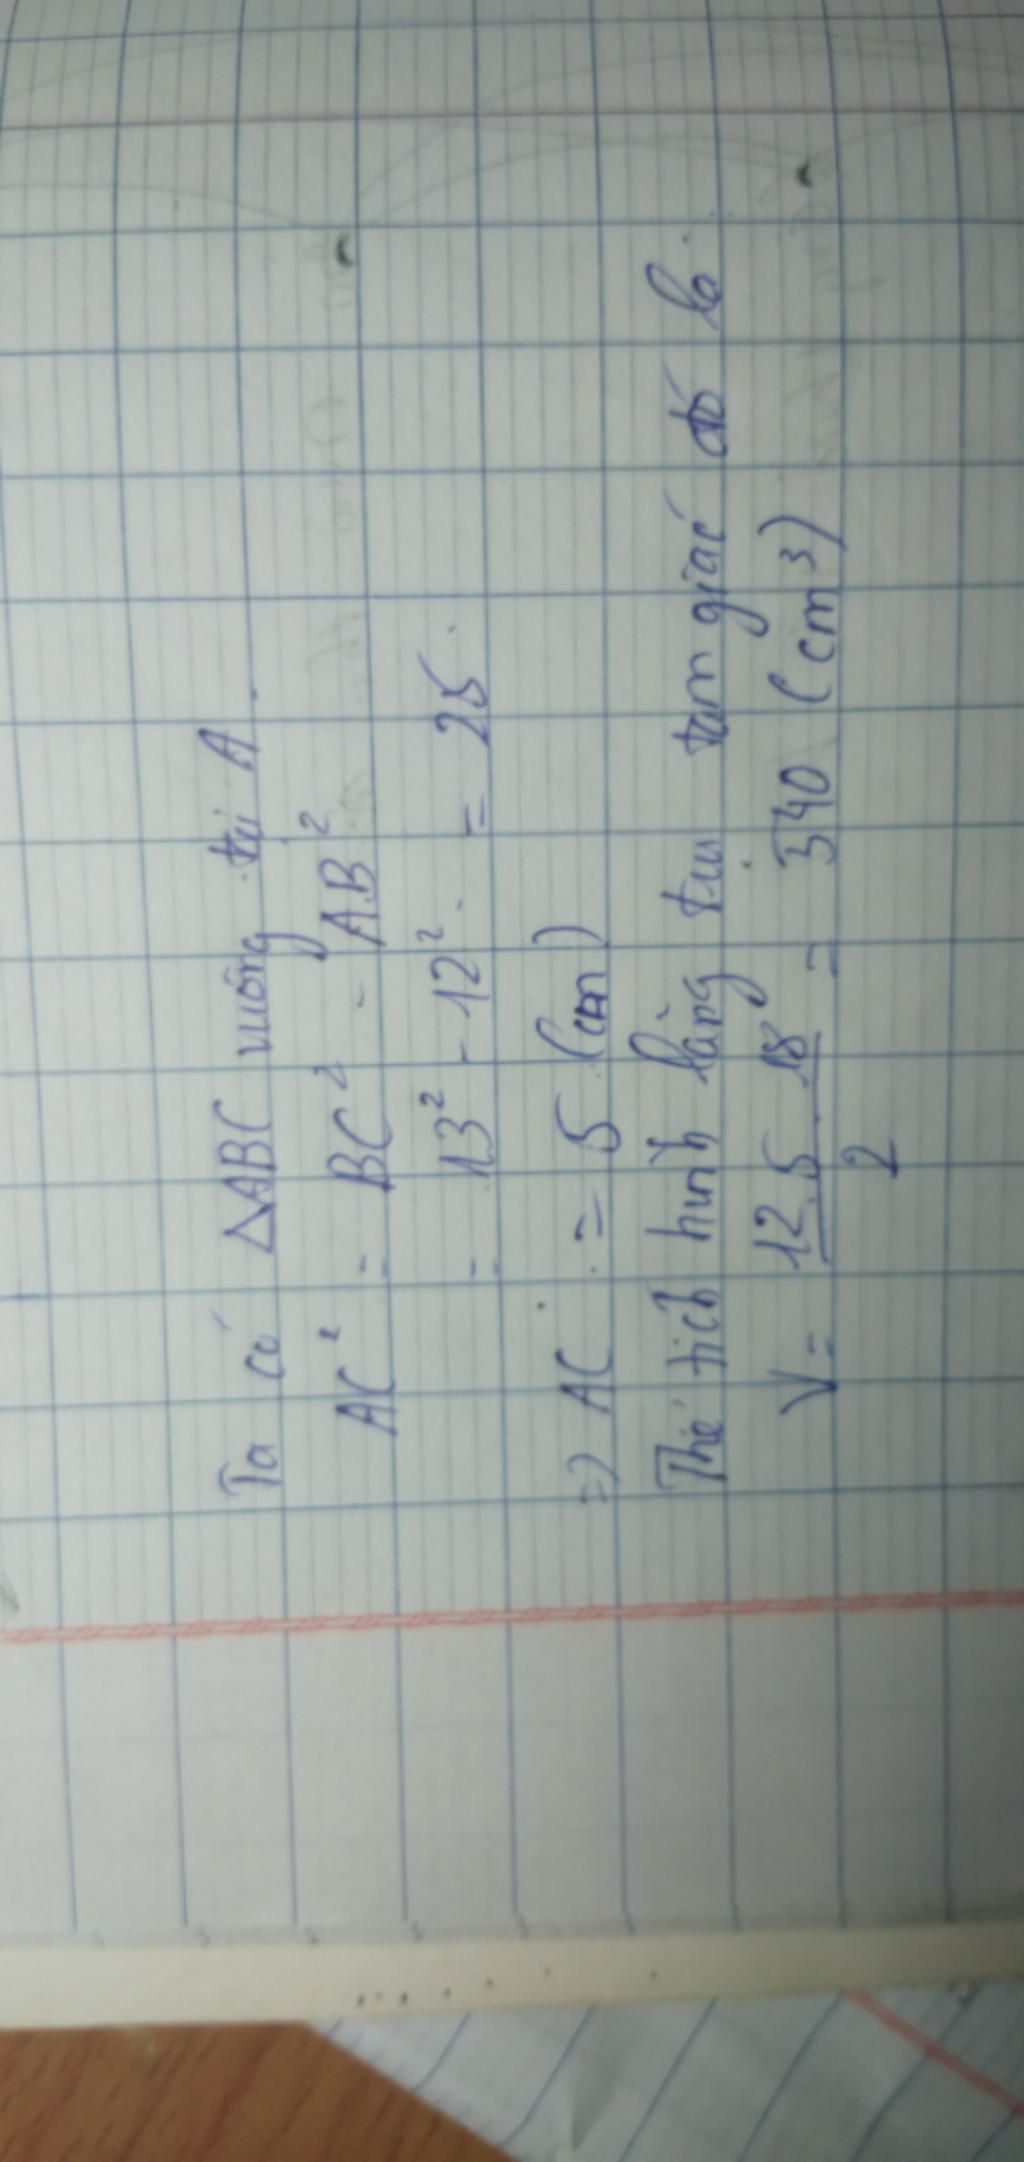 Ta có ΔABC vuông tại A.
AC² = BC² - AB²
= 13² - 12² = 25.
=> AC = 5 (cm)
Thể tích hình lăng trụ tam giác đó là.
V = \frac{12.5.18}{2} = 540 (cm³)